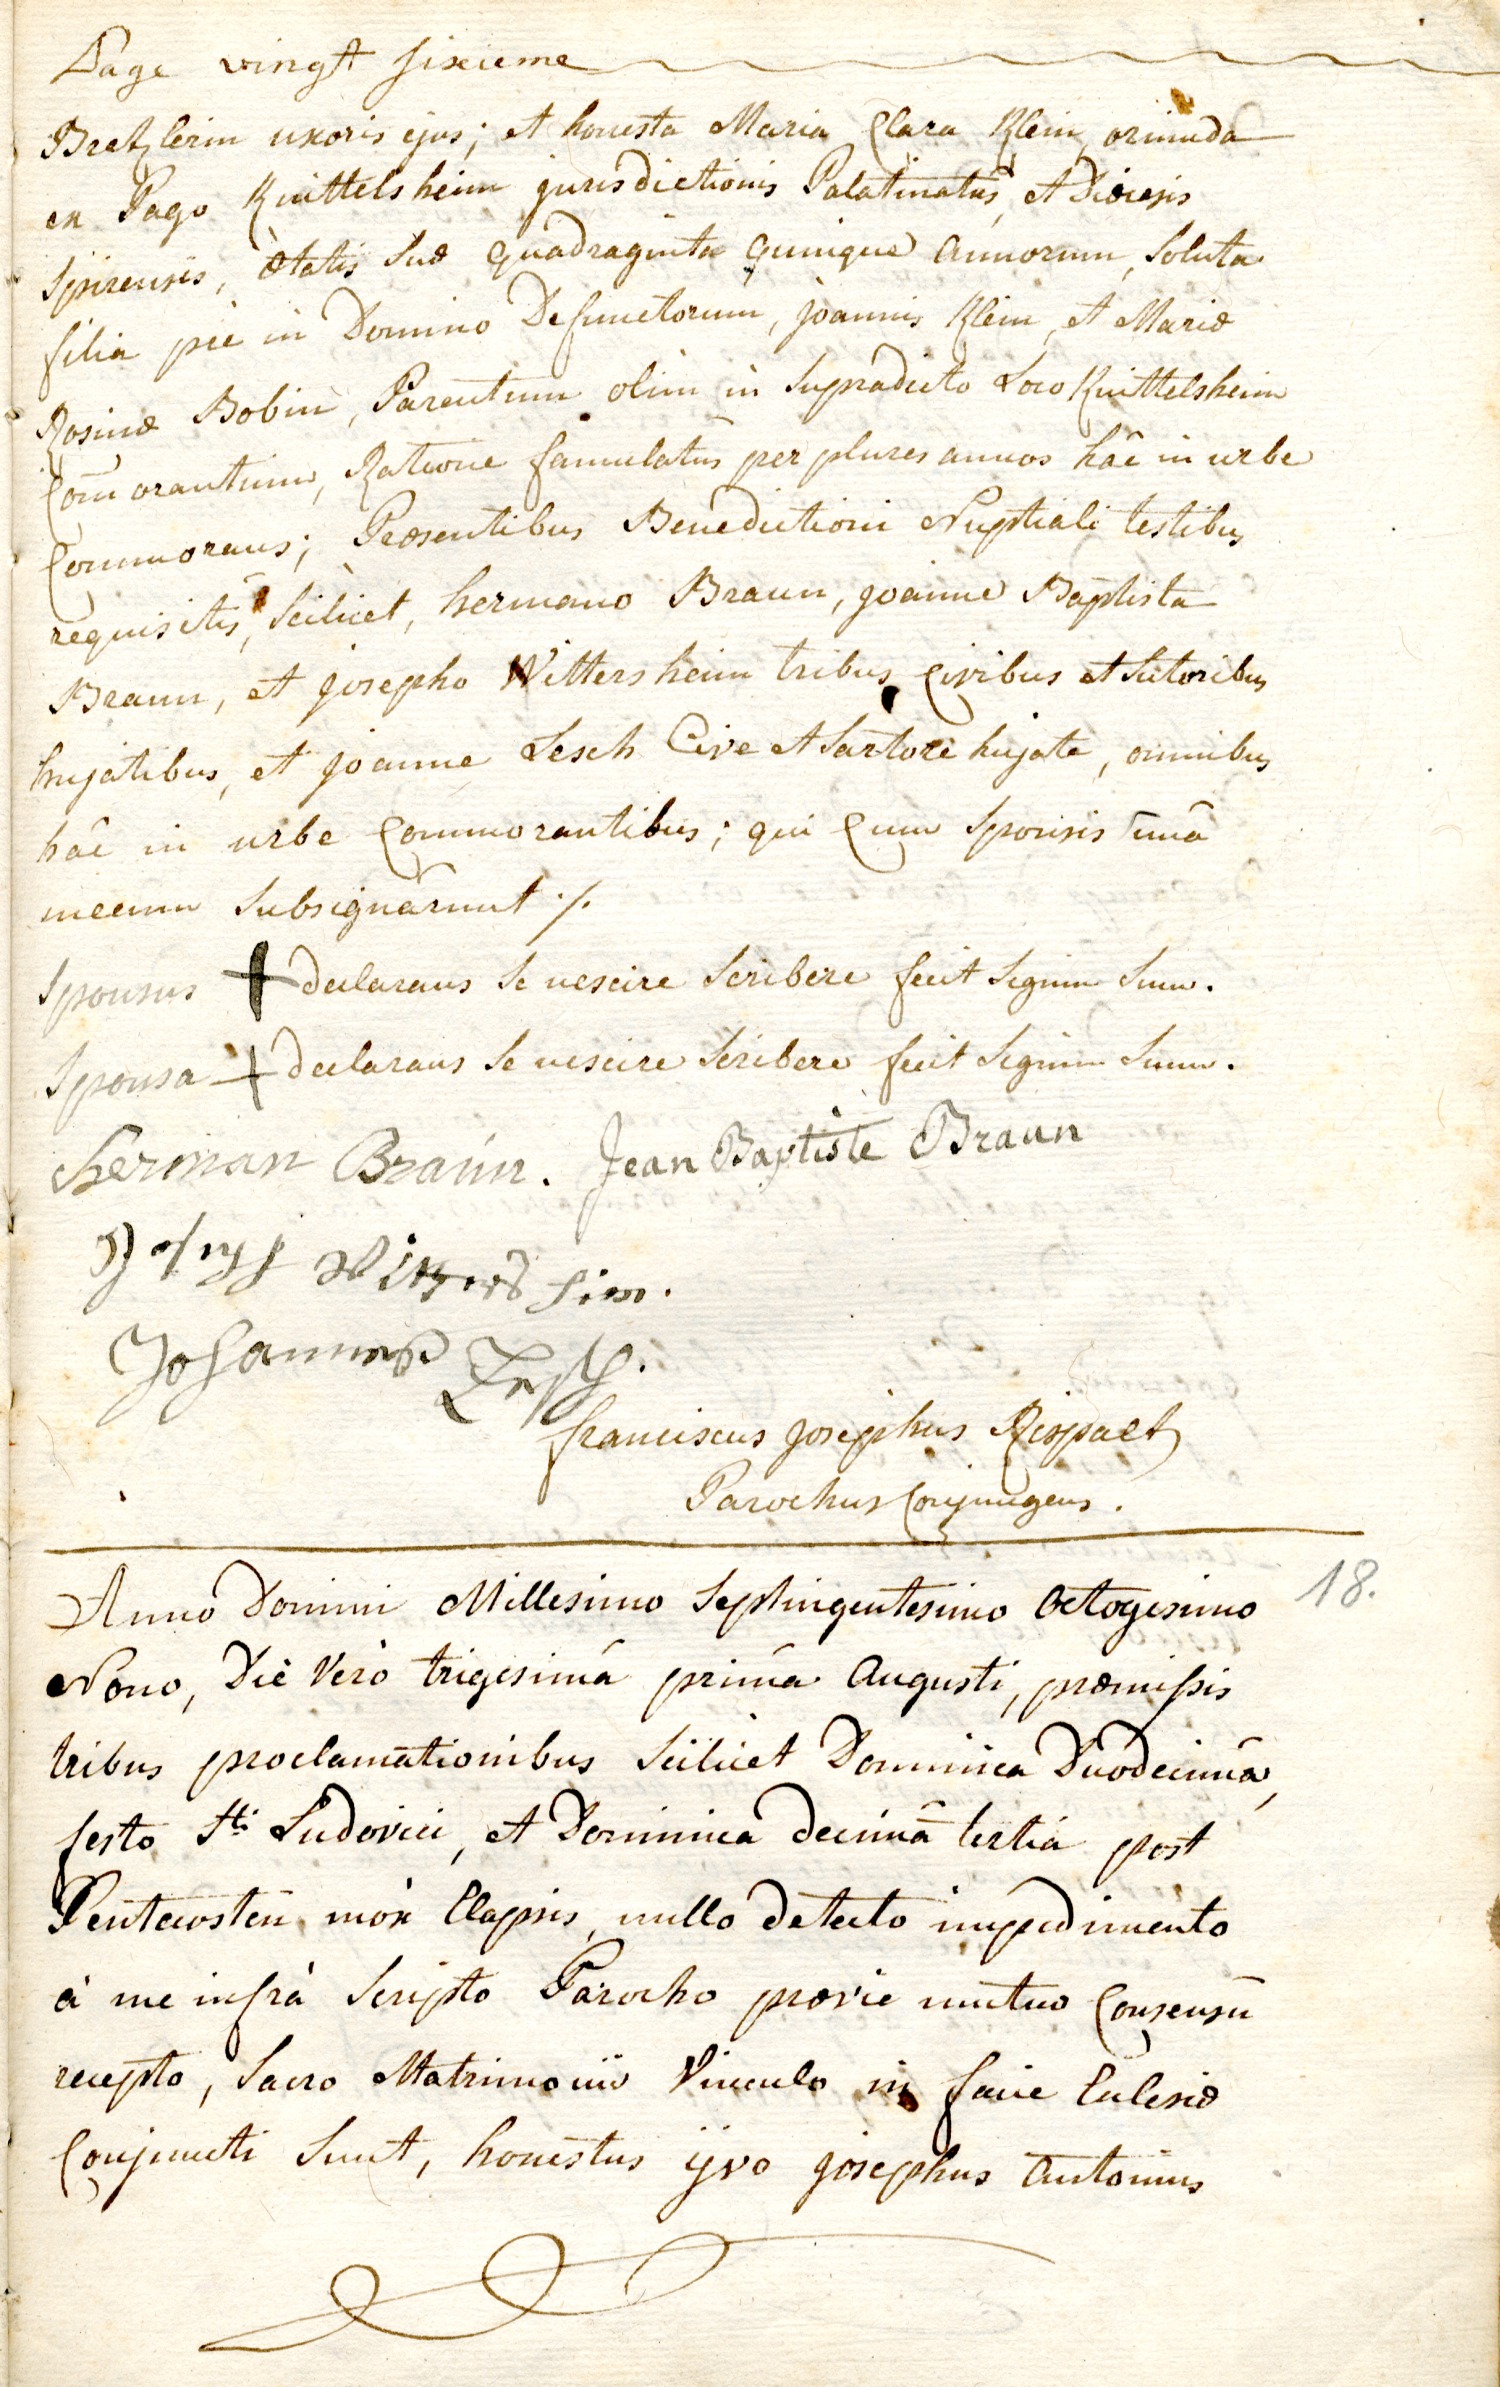 Page vingt sixieme
Bretzlerin uxoris ejus; et honesta Maria Clara Klein, oriunda
ex Pago Knittelsheim jurisdictionis Palatinatûs, et Dioecesis
Spirensis, ætatis suæ quadraginta quinque annorum, soluta
filia piè in Domino Defunctorum, joannis Klein, et Mariæ
Rosinæ Bobin, Parentum olim in supradicto Loco Knittelsheim
Com̄orantium, Ratione famulatûs per plures annos hâc in urbe
Commorans; Præsentibus Benedictioni Nuptiali testibus
requisitis, scilicet, hermano Braun, joanne Baptista
Braun, et josepho Wittersheim tribus Civibus et Sutoribus
hujatibus, et joanne Lesch Cive et Sartore hujate, omnibus
hâc in urbe Commorantibus; qui Cum Sponsis unâ
mecum Subsignârunt ./.
Sponsus + declarans se nescire scribere fecit signum suum.
Sponsa + declarans se nescire scribere fecit signum suum.
Herman Braun. Jean Baptiste Braun
Joseph Witters heim.
Johannes Lesch.
franciscus josephus Rispalt
Parochus Conjungens.
18.
Anno Domini Millesimo Septingentesimo Octogesimo
Nono, Die Verò trigesimâ primâ Augusti, præmissis
tribus proclamationibus scilicet Dominica Duodecimâ,
festo Sti Ludovici, et Dominica decimâ tertiâ post
Pentecosten mox Elapsis, nullo detecto impedimento
à me infrà Scripto Parocho prævie mutuo Consensu
recepto, Sacro Matrimonii Vinculo in facie Ecclesiæ
Conjuncti Sunt, honestus ijvo josephus Antonius